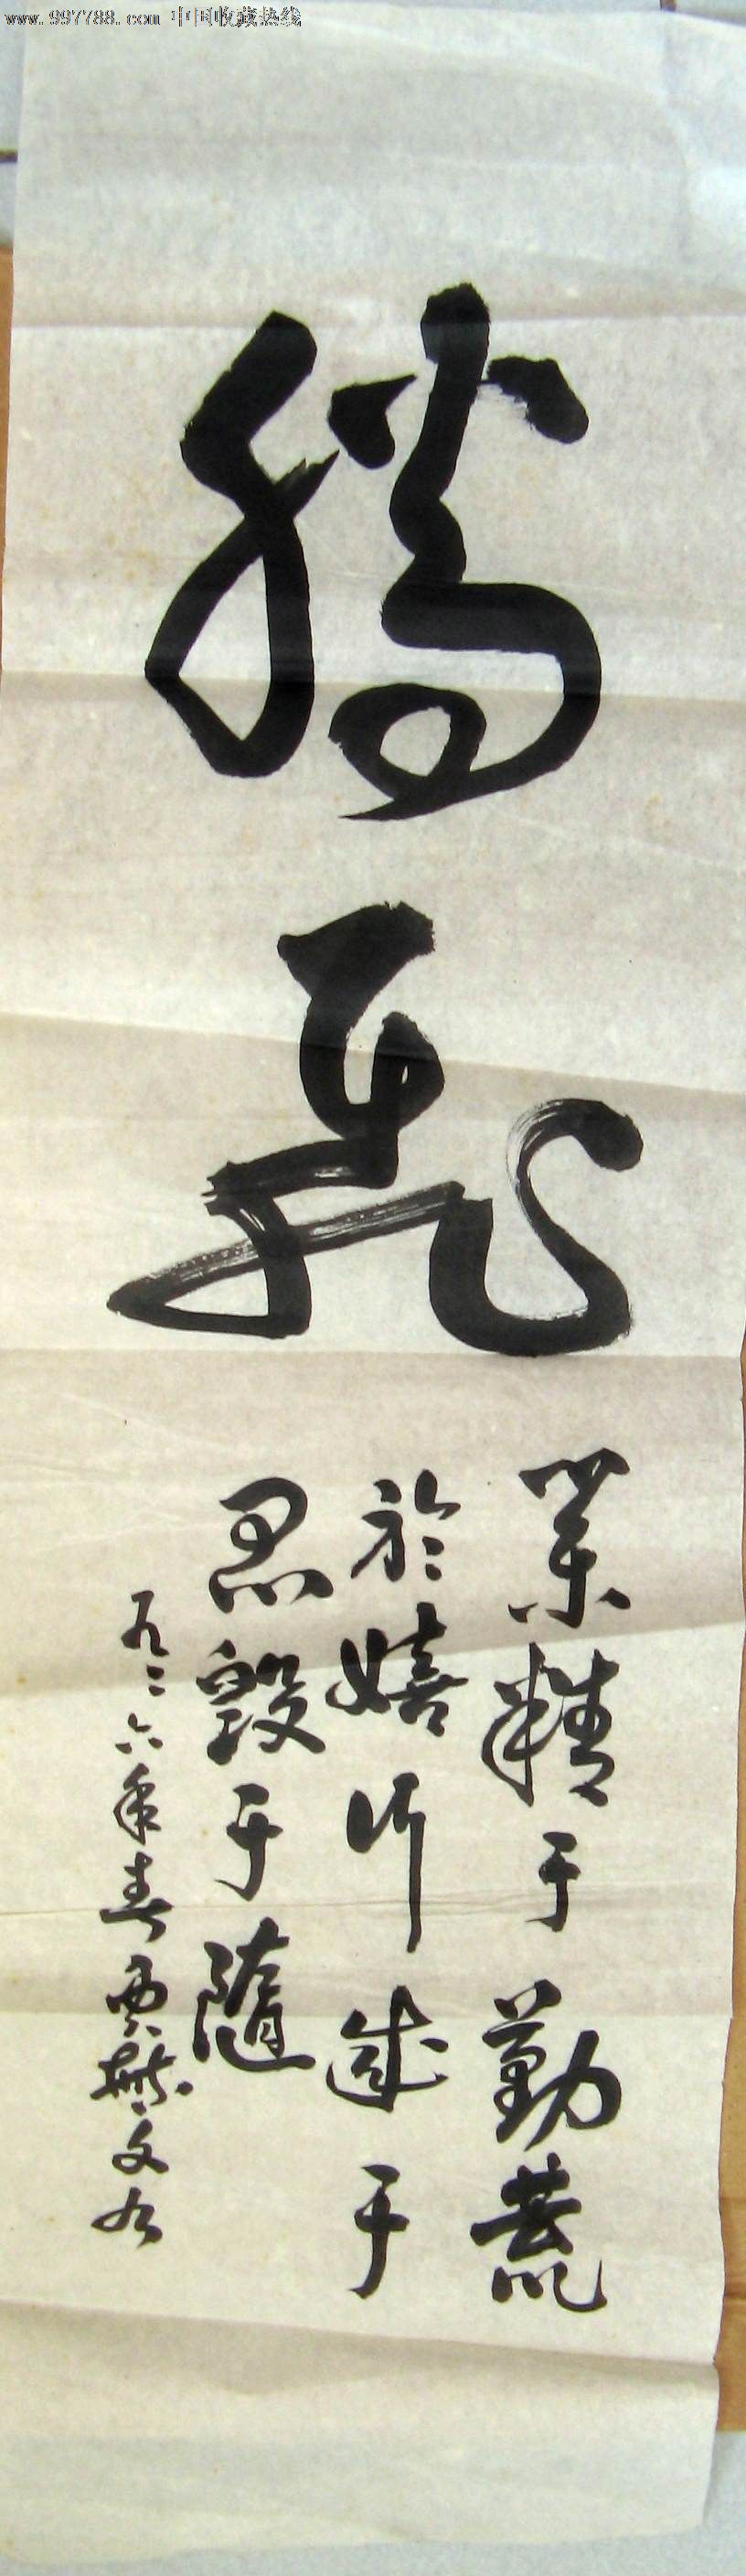 www.997788.com 中国收藏热线
腾飛
業精于勤荒
於嬉行成于
思毁于随
九二六年春